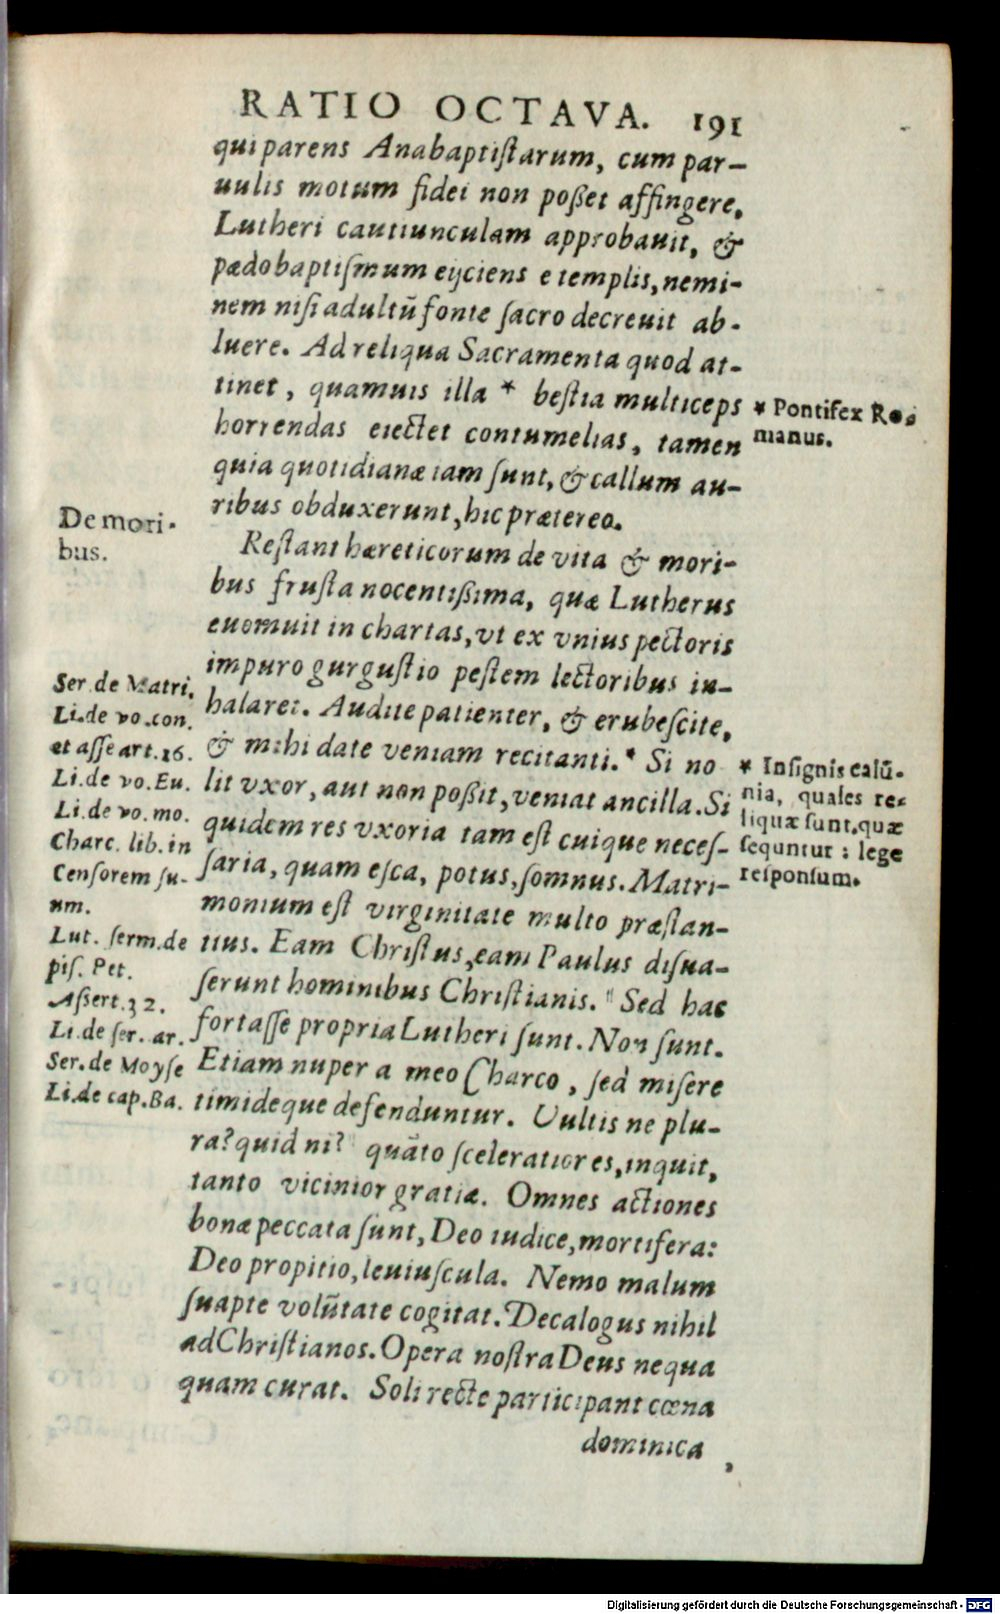 RATIO OCTAVA. 191
qui parens Anabaptiſtarum, cum par-
uulis motum fidei non poßet affingere,
Lutheri cautiunculam approbauit, &
pædobaptiſmum eijciens e templis, nemi-
nem niſi adultũ fonte ſacro decreuit ab-
luere. Ad reliqua Sacramenta quod at-
tinet, quamuis illa * beſtia multiceps
horrendas eiectet contumelias, tamen
quia quotidianæ iam ſunt, & callum au-
ribus obduxerunt, hic prætereo.
* Pontifex Ro-
manus.
De mori-
bus.
Reſtant hæreticorum de vita & mori-
bus fruſta nocentißima, quæ Lutherus
euomuit in chartas, vt ex vnius pectoris
impuro gurguſtio peſtem lectoribus in-
halaret. Audite patienter, & erubeſcite,
& mihi date veniam recitanti. * Si no
lit vxor, aut non poßit, veniat ancilla. Si
quidem res vxoria tam eſt cuique neceſ-
ſaria, quam eſca, potus, ſomnus. Matri-
monium eſt virginitate multo præſtan-
tius. Eam Chriſtus, eam Paulus diſua-
ſerunt hominibus Chriſtianis. " Sed hæc
fortaſſe propria Lutheri ſunt. Non ſunt.
Etiam nuper a meo Charco, ſed miſere
timideque defenduntur. Uultis ne plu-
ra? quid ni? " quãto ſceleratior es, inquit,
tanto vicinior gratiæ. Omnes actiones
bonæ peccata ſunt, Deo iudice, mortifera:
Deo propitio, leuiuſcula. Nemo malum
ſuapte volũtate cogitat. Decalogus nihil
ad Chriſtianos. Opera noſtra Deus nequa
quam curat. Soli recte participant cœna
dominica
Ser. de Matri.
Li. de vo. con.
et aſſe art. 16.
Li. de vo. Eu.
Li. de vo. mo.
Charc. lib. in
Cenſorem ſu-
um.
Lut. ſerm. de
piſ. Pet.
Aſſert. 32.
Li. de ſer. ar.
Ser. de Moyſe
Li. de cap. Ba.
* Inſignis calũ-
nia, quales re-
liquæ ſunt, quæ
ſequntur : lege
reſponſum.
Digitalisierung gefördert durch die Deutsche Forschungsgemeinschaft - DFG